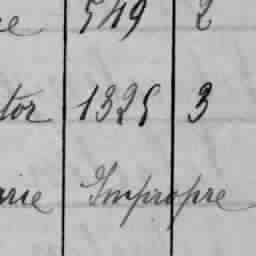 ce 549 2
tor 1325 3
arie Impropre